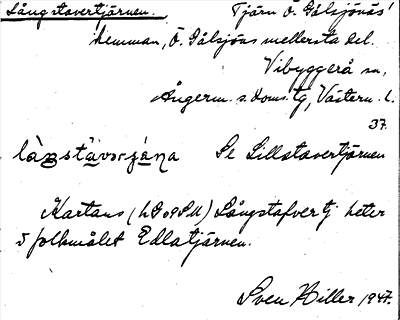 Långstavertjärnen. Tjärn Ö. Gålsjönäs'
hemman, Ö. Gålsjös mellersta del.
Vibyggerå sn,
Ångerm. s. doms. tg, Västern. l.
37.
Se Lillstavertjärnen
Kartans (h) Långstafvertj heter
i folkmålet Edlatjärnen.
Sven Hiller 1947.